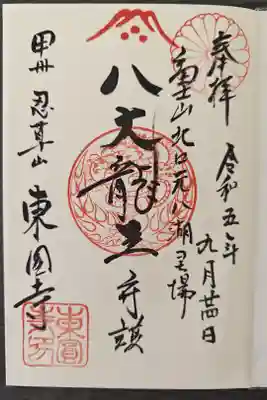 奉拝
令和五年
九月廿四日
富士山北口元八湖霊場
八大龍王守護
甲州
忍草山
東圓寺
東圓
寺印